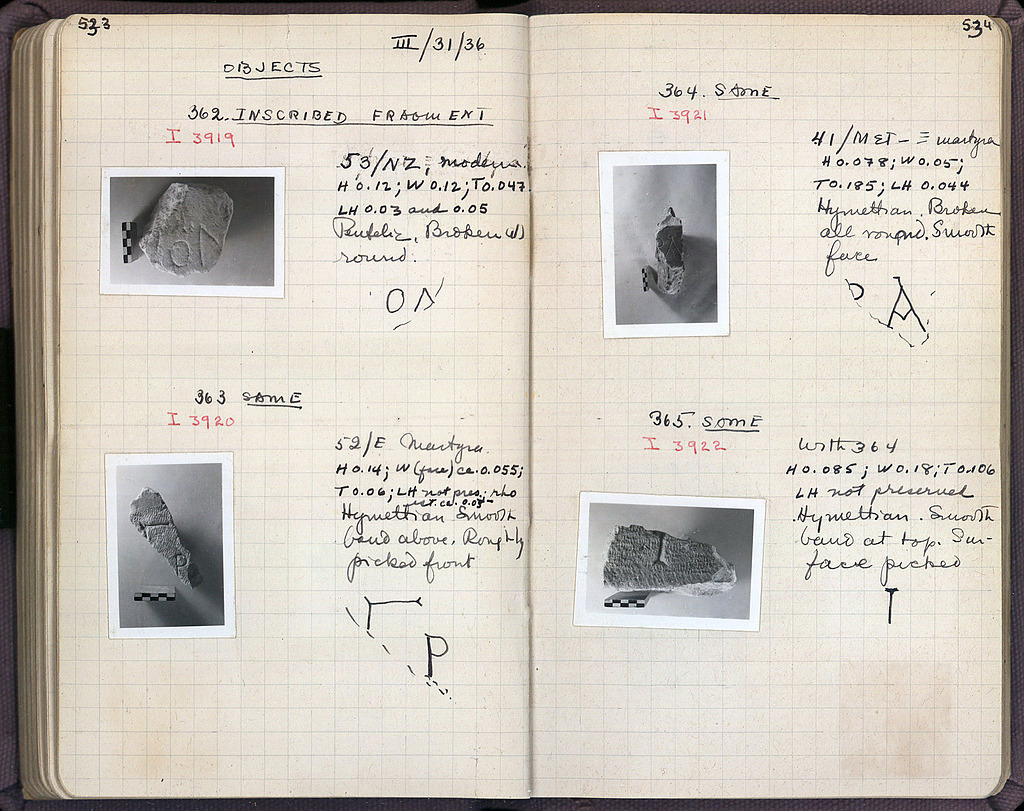 523
III/31/36
OBJECTS
362. INSCRIBED FRAGMENT
I 3919
53/NZ; modern
H 0.12; W 0.12; T 0.047
LH 0.03 and 0.05
Pentelic, Broken all
round.
Ο Λ
363 SAME
I 3920
52/E Martyra.
H 0.14; W (face) ca. 0.055;
T 0.06; LH not pres.; rho
est. ca. 0.03
Hymettian Smooth
band above. Roughly
picked front
Γ
Ρ
534
364. SAME
I 3921
41/ΜΣΤ - Ξ martyra
H 0.078; W 0.05;
T 0.185; LH 0.044
Hymettian. Broken
all round. Smooth
face
Α
365. SAME
I 3922
With 364
H 0.085; W 0.18; T 0.106
LH not preserved
Hymettian. Smooth
band at top. Sur-
face picked
Τ